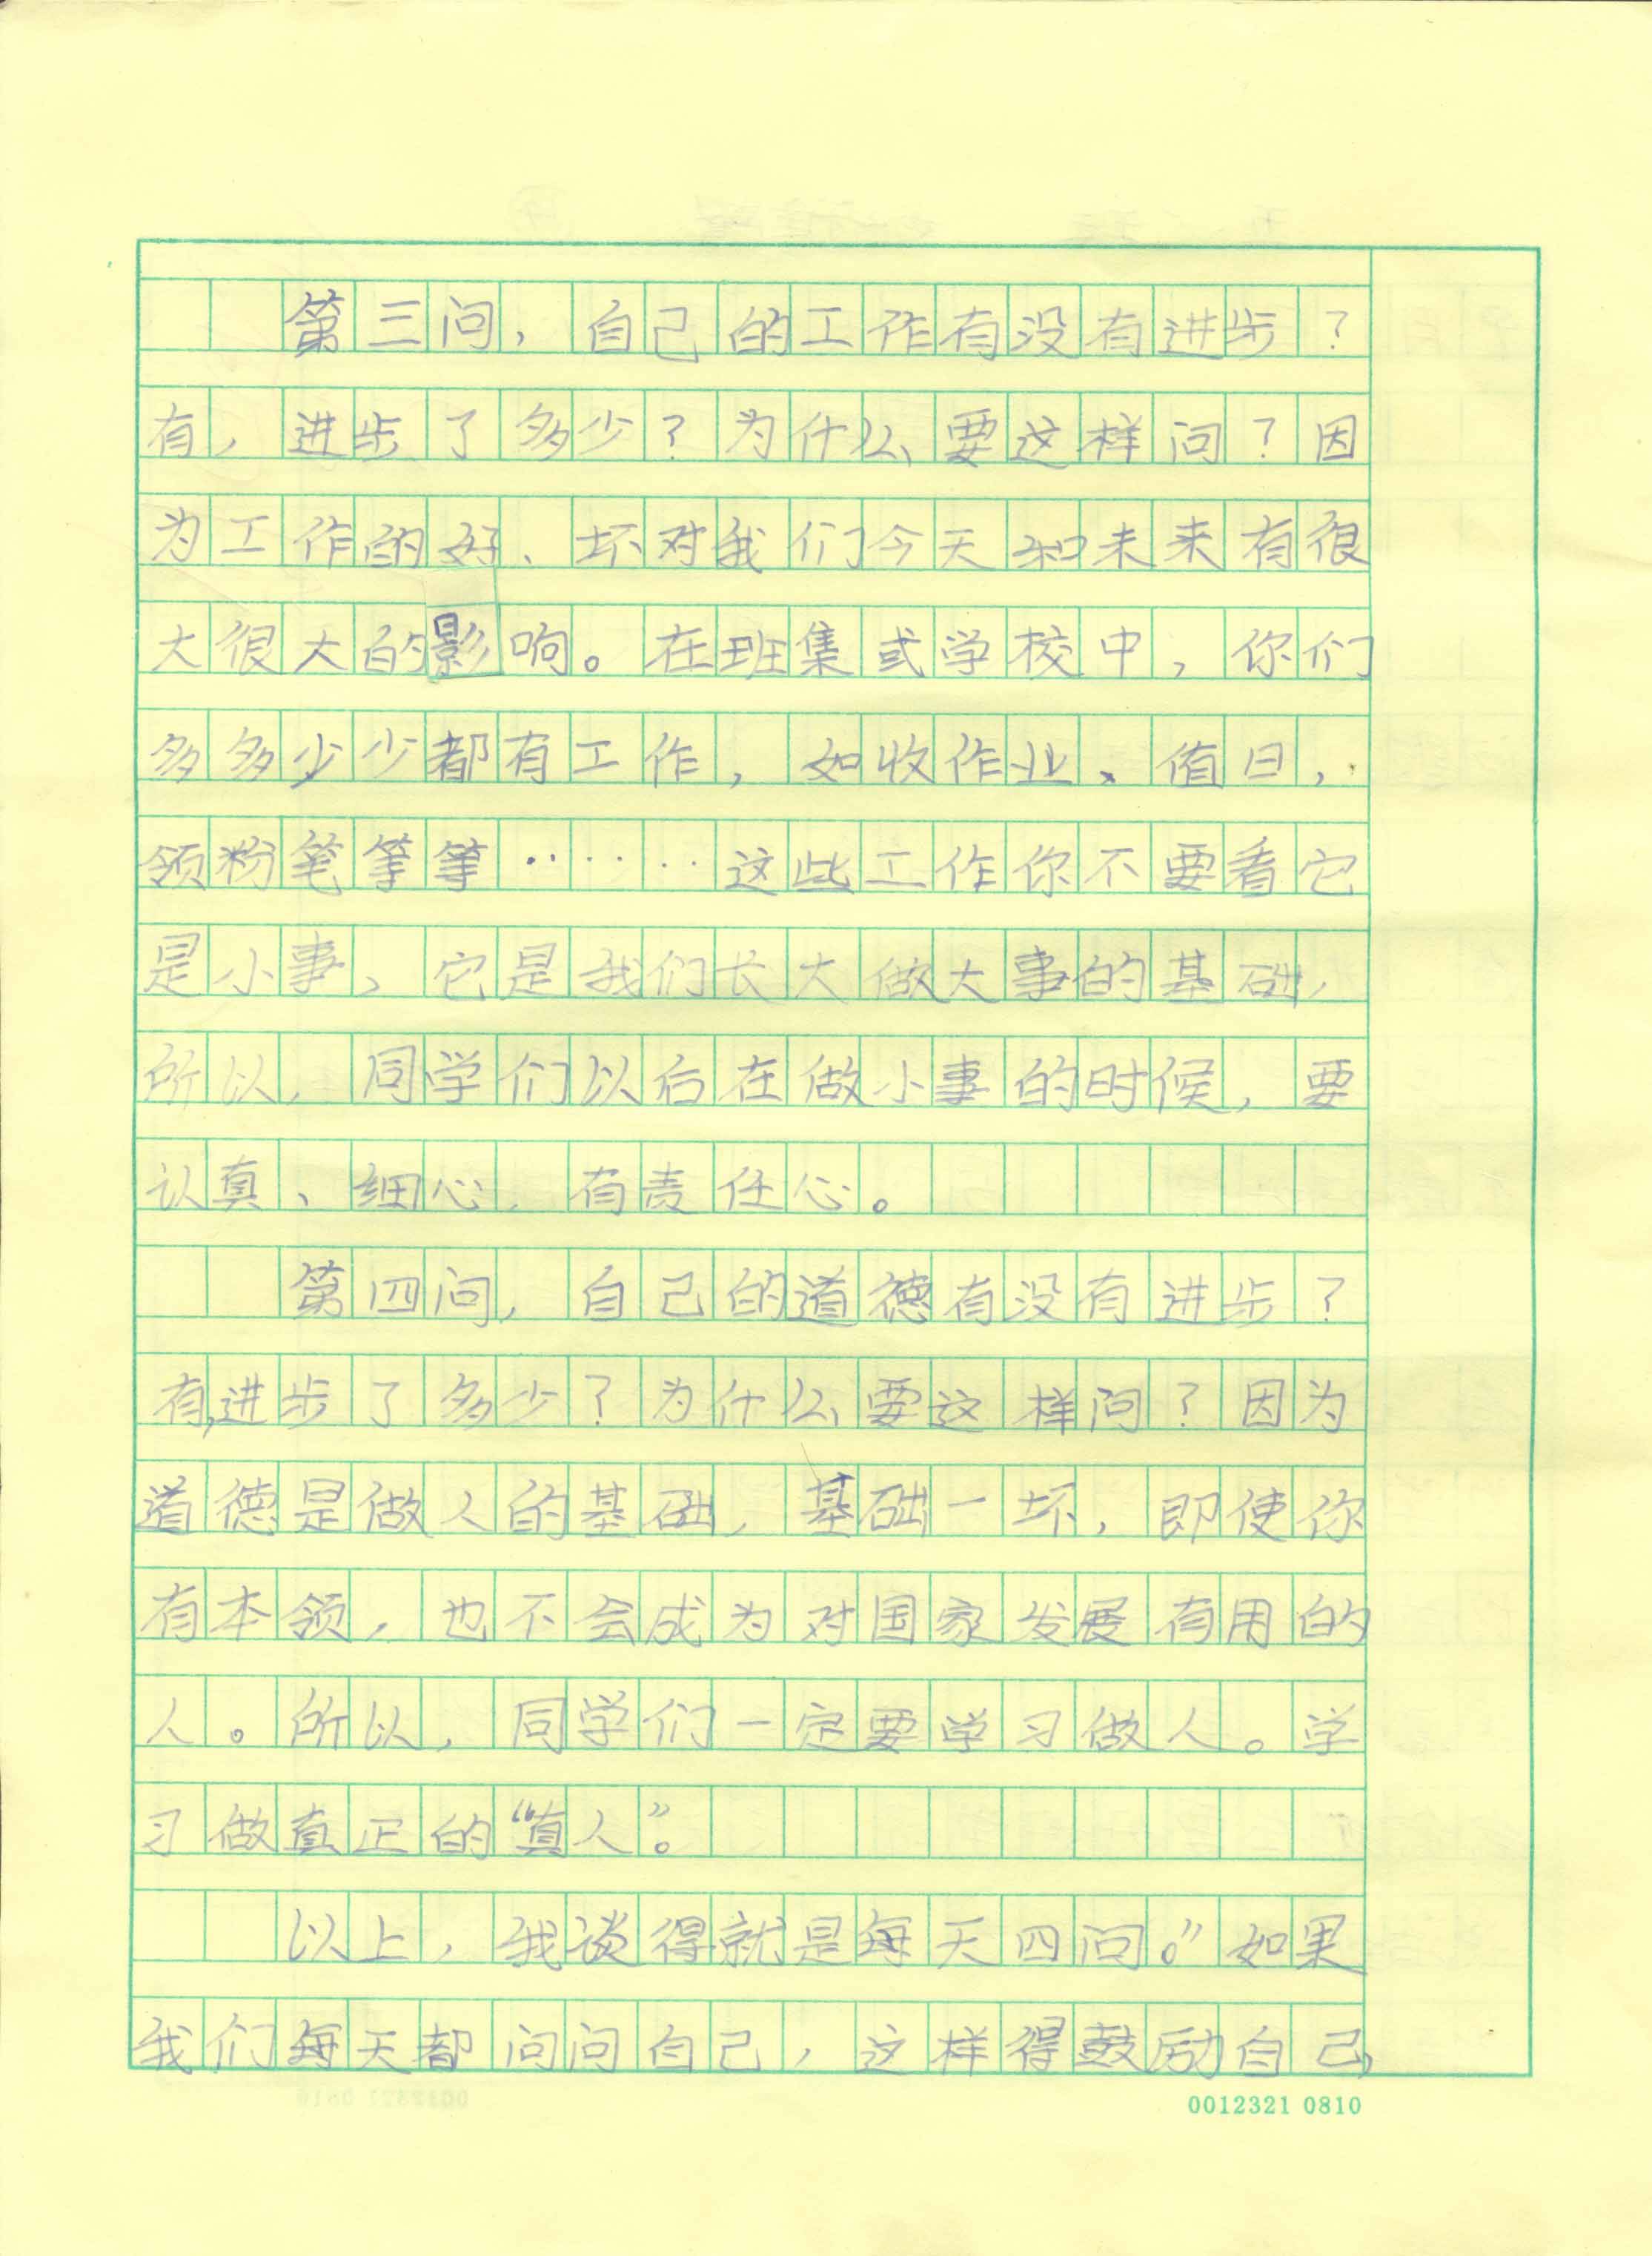 第三问，自己的工作有没有进步？
有，进步了多少？为什么要这样问？因
为工作的好、坏对我们今天和未来有很
大很大的影响。在班集或学校中，你们
多多少少都有工作，如收作业、值日，
领粉笔等等……这些工作你不要看它
是小事，它是我们长大做大事的基础，
所以，同学们以后在做小事的时候，要
认真、细心、有责任心。
第四问，自己的道德有没有进步？
有，进步了多少？为什么要这样问？因为
道德是做人的基础，基础一坏，即使你
有本领，也不会成为对国家发展有用的
人。所以，同学们一定要学习做人。学
习做真正的“真人”。
以上，我谈得就是每天四问。”如果
我们每天都问问自己，这样得鼓励自己，
0012321 0810